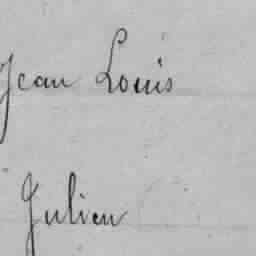 Jean Louis
Julien